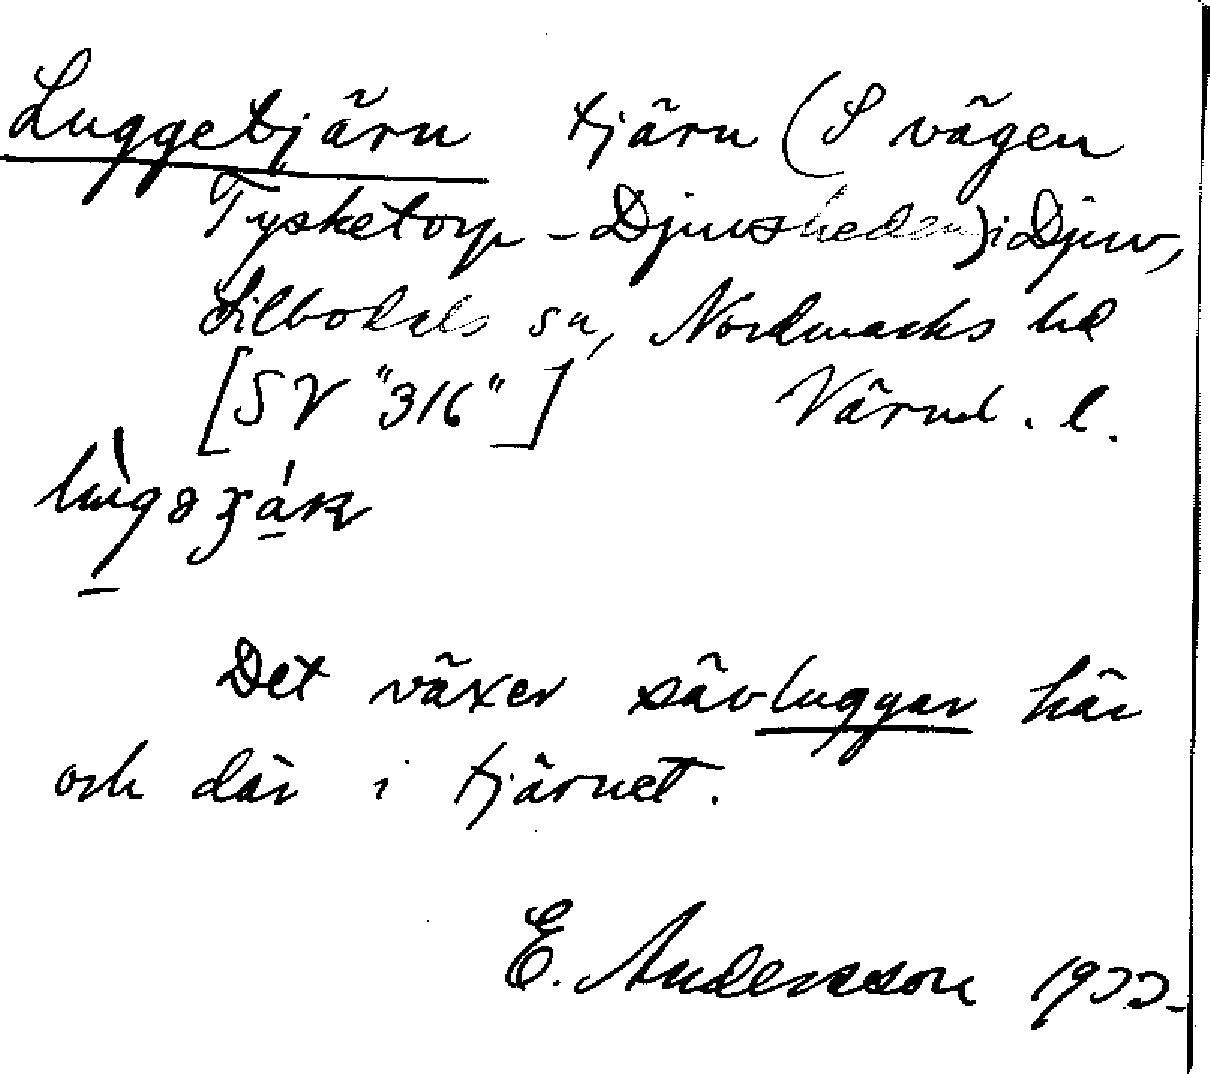 Luggetjärn tjärn (S vägen
Tysketorp - Djuvsheden) i Djuv,
Silbodals sn, Nordmarks hd
[SV "316"] Värml. l.
Det växer sävluggar här
och där i tjärnet.
E. Andersson 1933